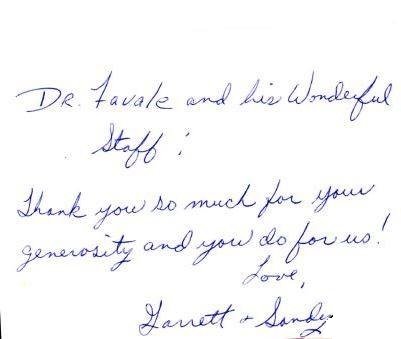 Dr. Favale and his Wonderful
Staff:
Thank you so much for your
generosity and you do for us!
Love,
Garrett + Sandy